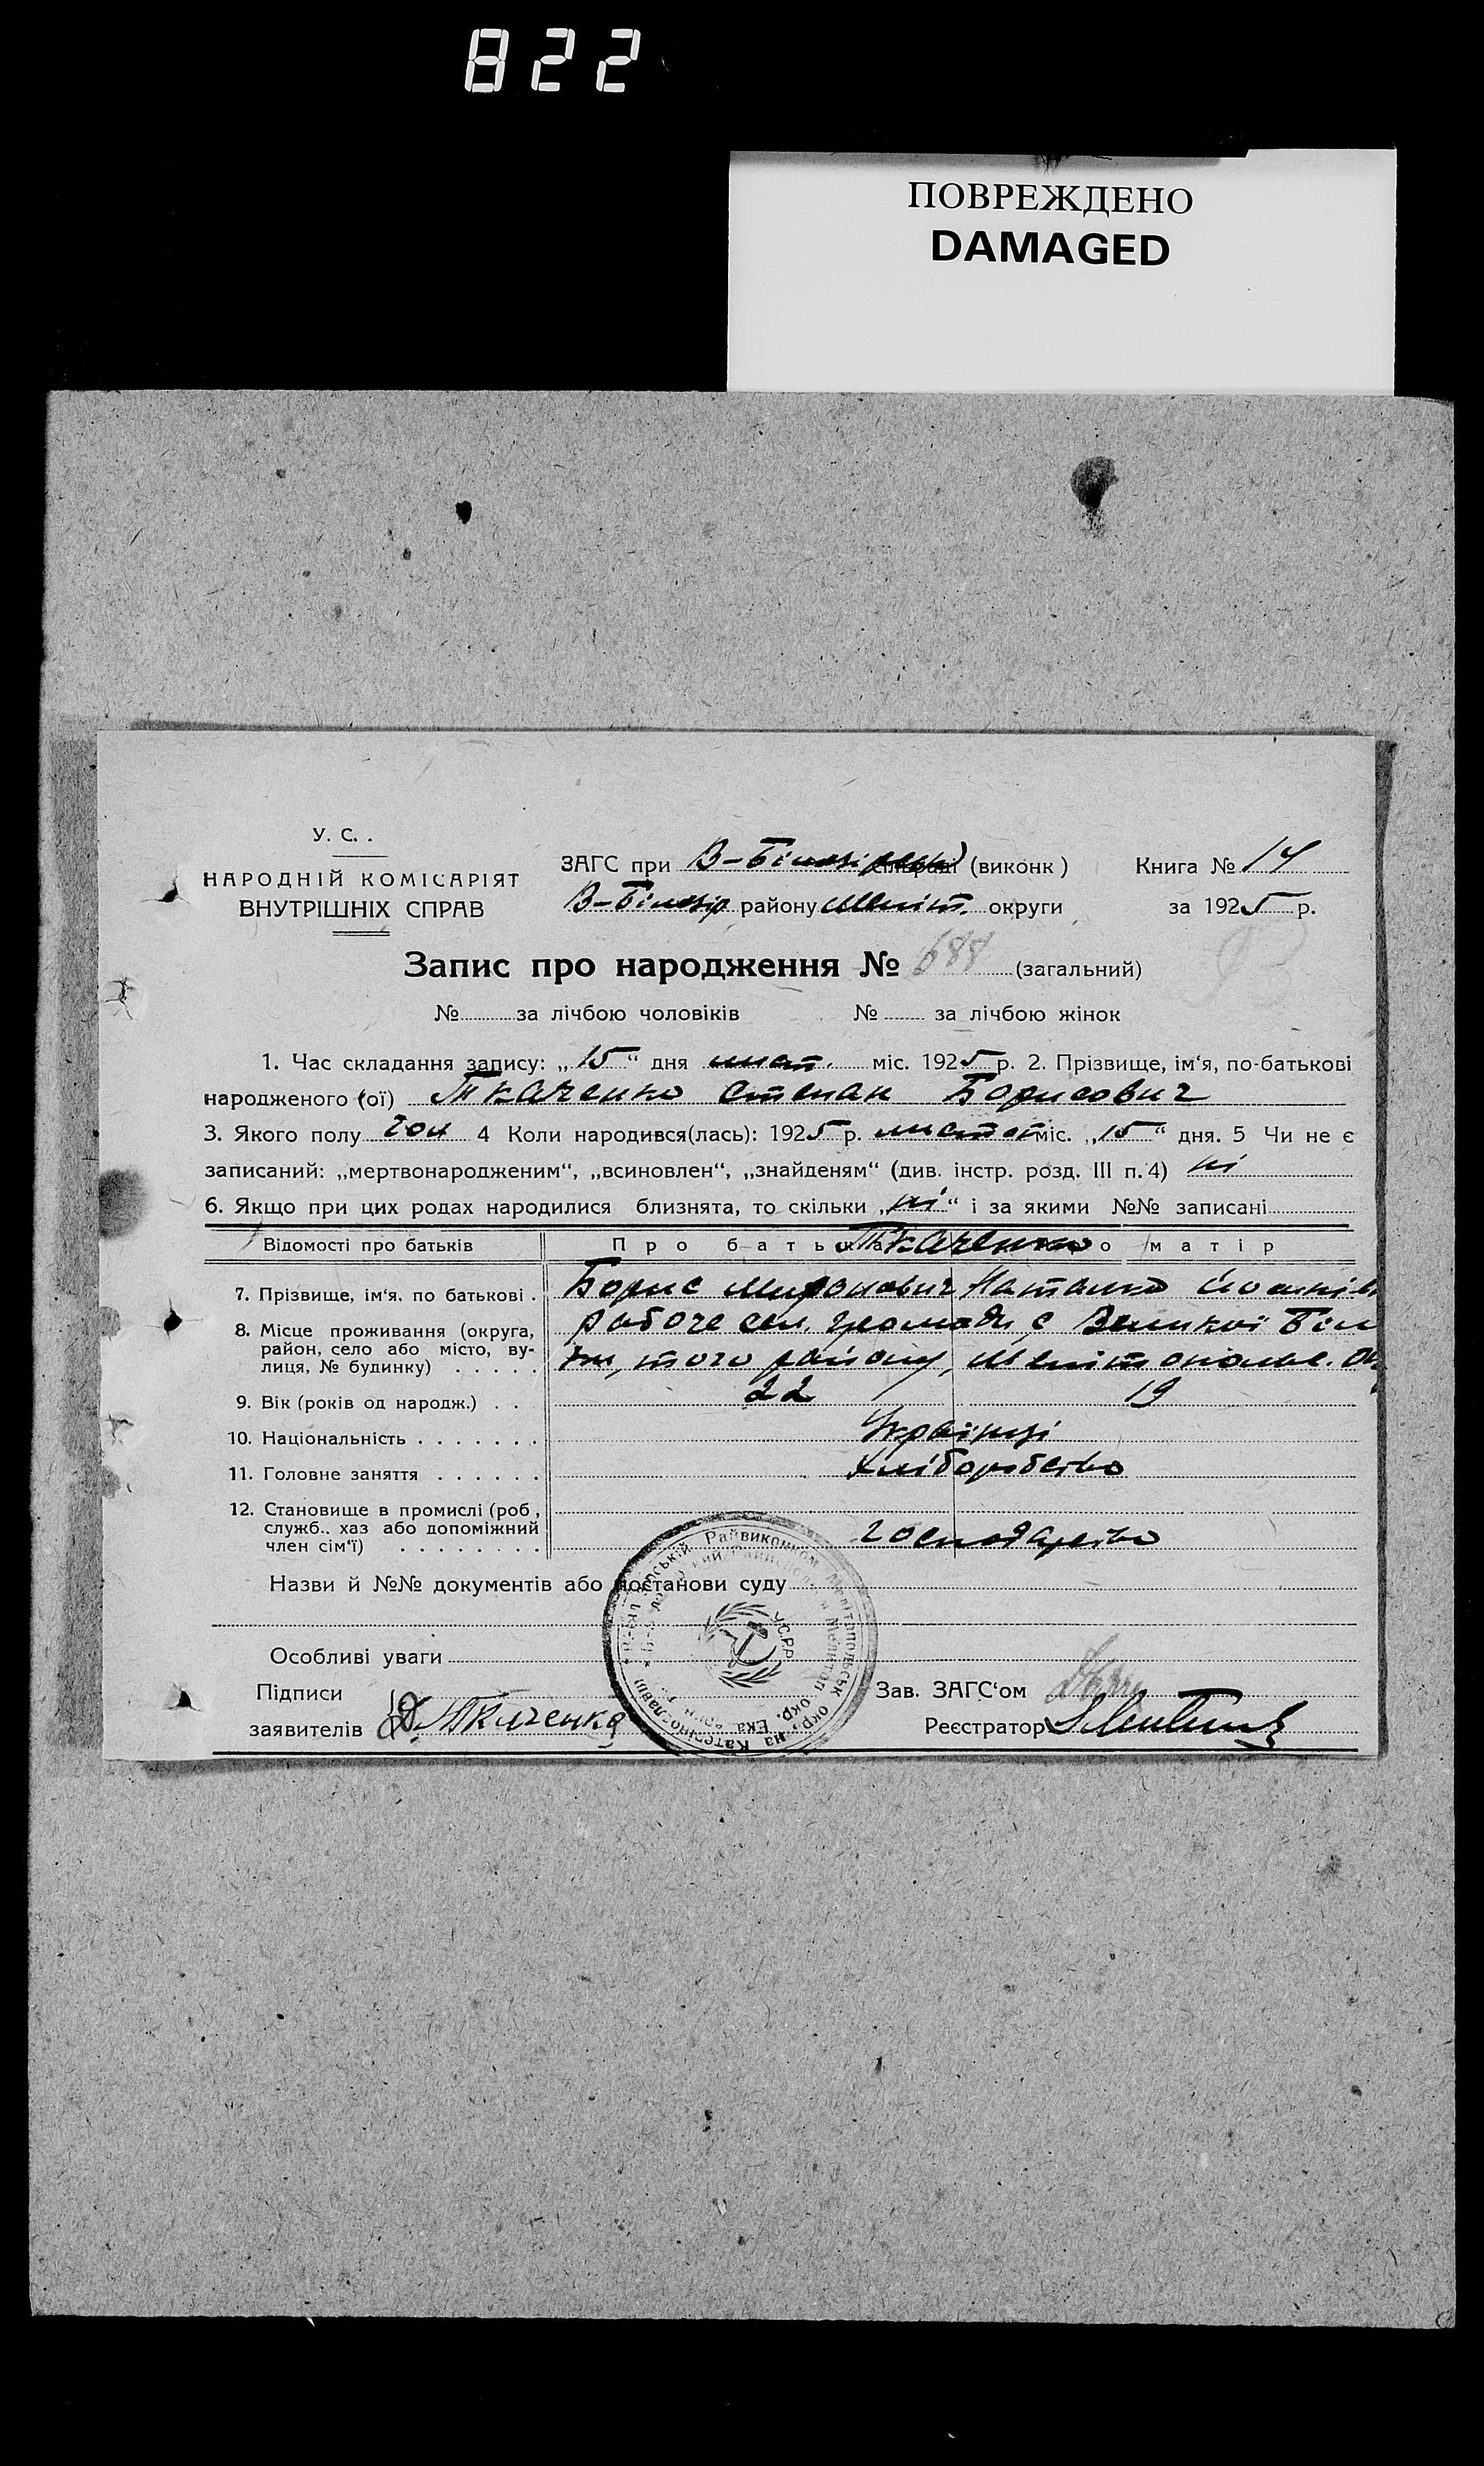 822
ПОВРЕЖДЕНО
DAMAGED
У. С. .
НАРОДНІЙ КОМІСАРІЯТ
ВНУТРІШНІХ СПРАВ
ЗАГС при В-Білозірськ сільраді (виконк)
Книга № 14
В-Білозір району Меліт. округи
за 1925 р.
Запис про народження № 688 (загальний)
№ за лічбою чоловіків № за лічбою жінок
1. Час складання запису: „15“ дня лист. міс. 1925 р. 2. Прізвище, ім‘я, по-батькові
народженого (ої) Ткаченко Степан Борисович
3. Якого полу чол 4 Коли народився(лась): 1925 р. листоп міс. „15“ дня. 5 Чи не є
записаний: „мертвонародженим“, „всиновлен“, „знайденям“ (див. інстр. розд. III п. 4) ні
6. Якщо при цих родах народилися близнята, то скільки „ні“ і за якими №№ записані
Відомості про батьків
Про батька Ткаченко Про матір
7. Прізвище, ім‘я, по батькові . Борис Миронович Наталка
8. Місце проживання (округа, район, село або місто, вулиця, № будинку) . . . . . сел. громади с Великої Біл
того району, Мелітопольс. Ок
9. Вік (років од народж.) . . 22 19
10. Національність . . . . . . . Українці
11. Головне заняття . . . . . . Хліборобство
12. Становище в промислі (роб,
служб.. хаз або допоміжний
член сім‘ї) . . . . . . . . Господарство
Назви й №№ документів або постанови суду
Особливі уваги
Підписи
заявителів Ткаченко
Зав. ЗАГС‘ом
Реєстратор
Райвиконком Мелітопольськ окр.
У.С.Р.Р.